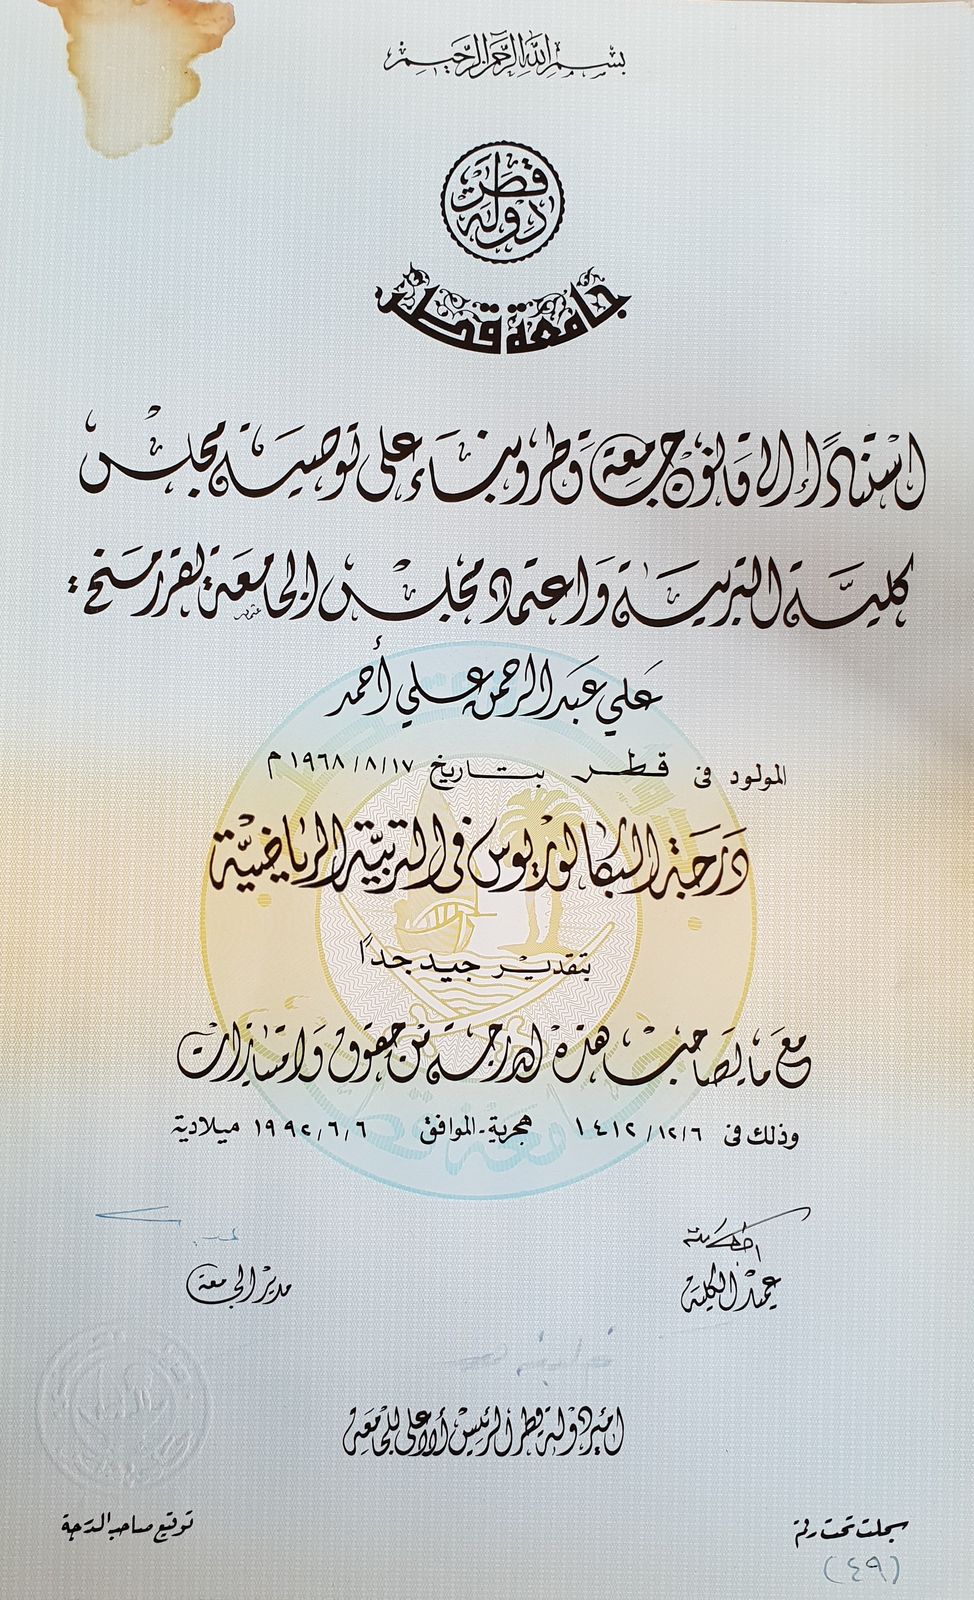 بسم الله الرحمن الرحيم
دولة قطر
جامعة قطر
استنادًا إلى قانون جامعة قطر وبناء على توصية مجلس
كلية التربية واعتماد مجلس الجامعة تقرر منح
علي عبدالرحمن علي أحمد
المولود فى قطر بتاريخ ١٩٦٨/٨/١٧ م
درجة البكالوريوس في التربية الرياضية
بتقدير جيد جدًا
مع ما يصاحب هذه الدرجة من حقوق وامتيازات
وذلك فى ١٤١٢/١٢/٦ هجرية - الموافق ١٩٩٢/٦/٦ ميلادية
عميد الكلية
مدير الجامعة
امير دولة قطر الرئيس الأعلى للجامعة
سجلت تحت رقم
(٤٩)
توقيع صاحب الدرجة